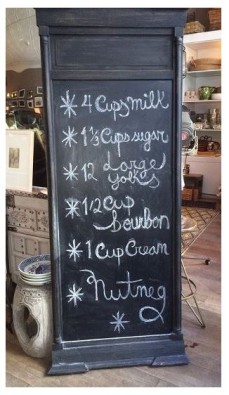 * 4 Cups milk
* 1 1/3 Cups sugar
* 12 Large
yolks
* 1/2 Cup
bourbon
* 1 Cup Cream
* Nutmeg
*